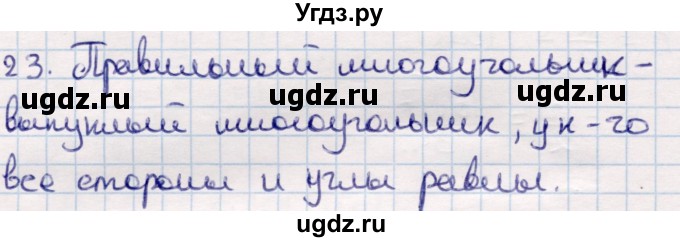 Угдз.ру
23. Правильный многоугольник -
ugdz.ru ugdz.ru
выпуклый многоугольник, у к-го
все стороны и углы равны.
ugdz.ru ugdz.ru
ugdz.ru